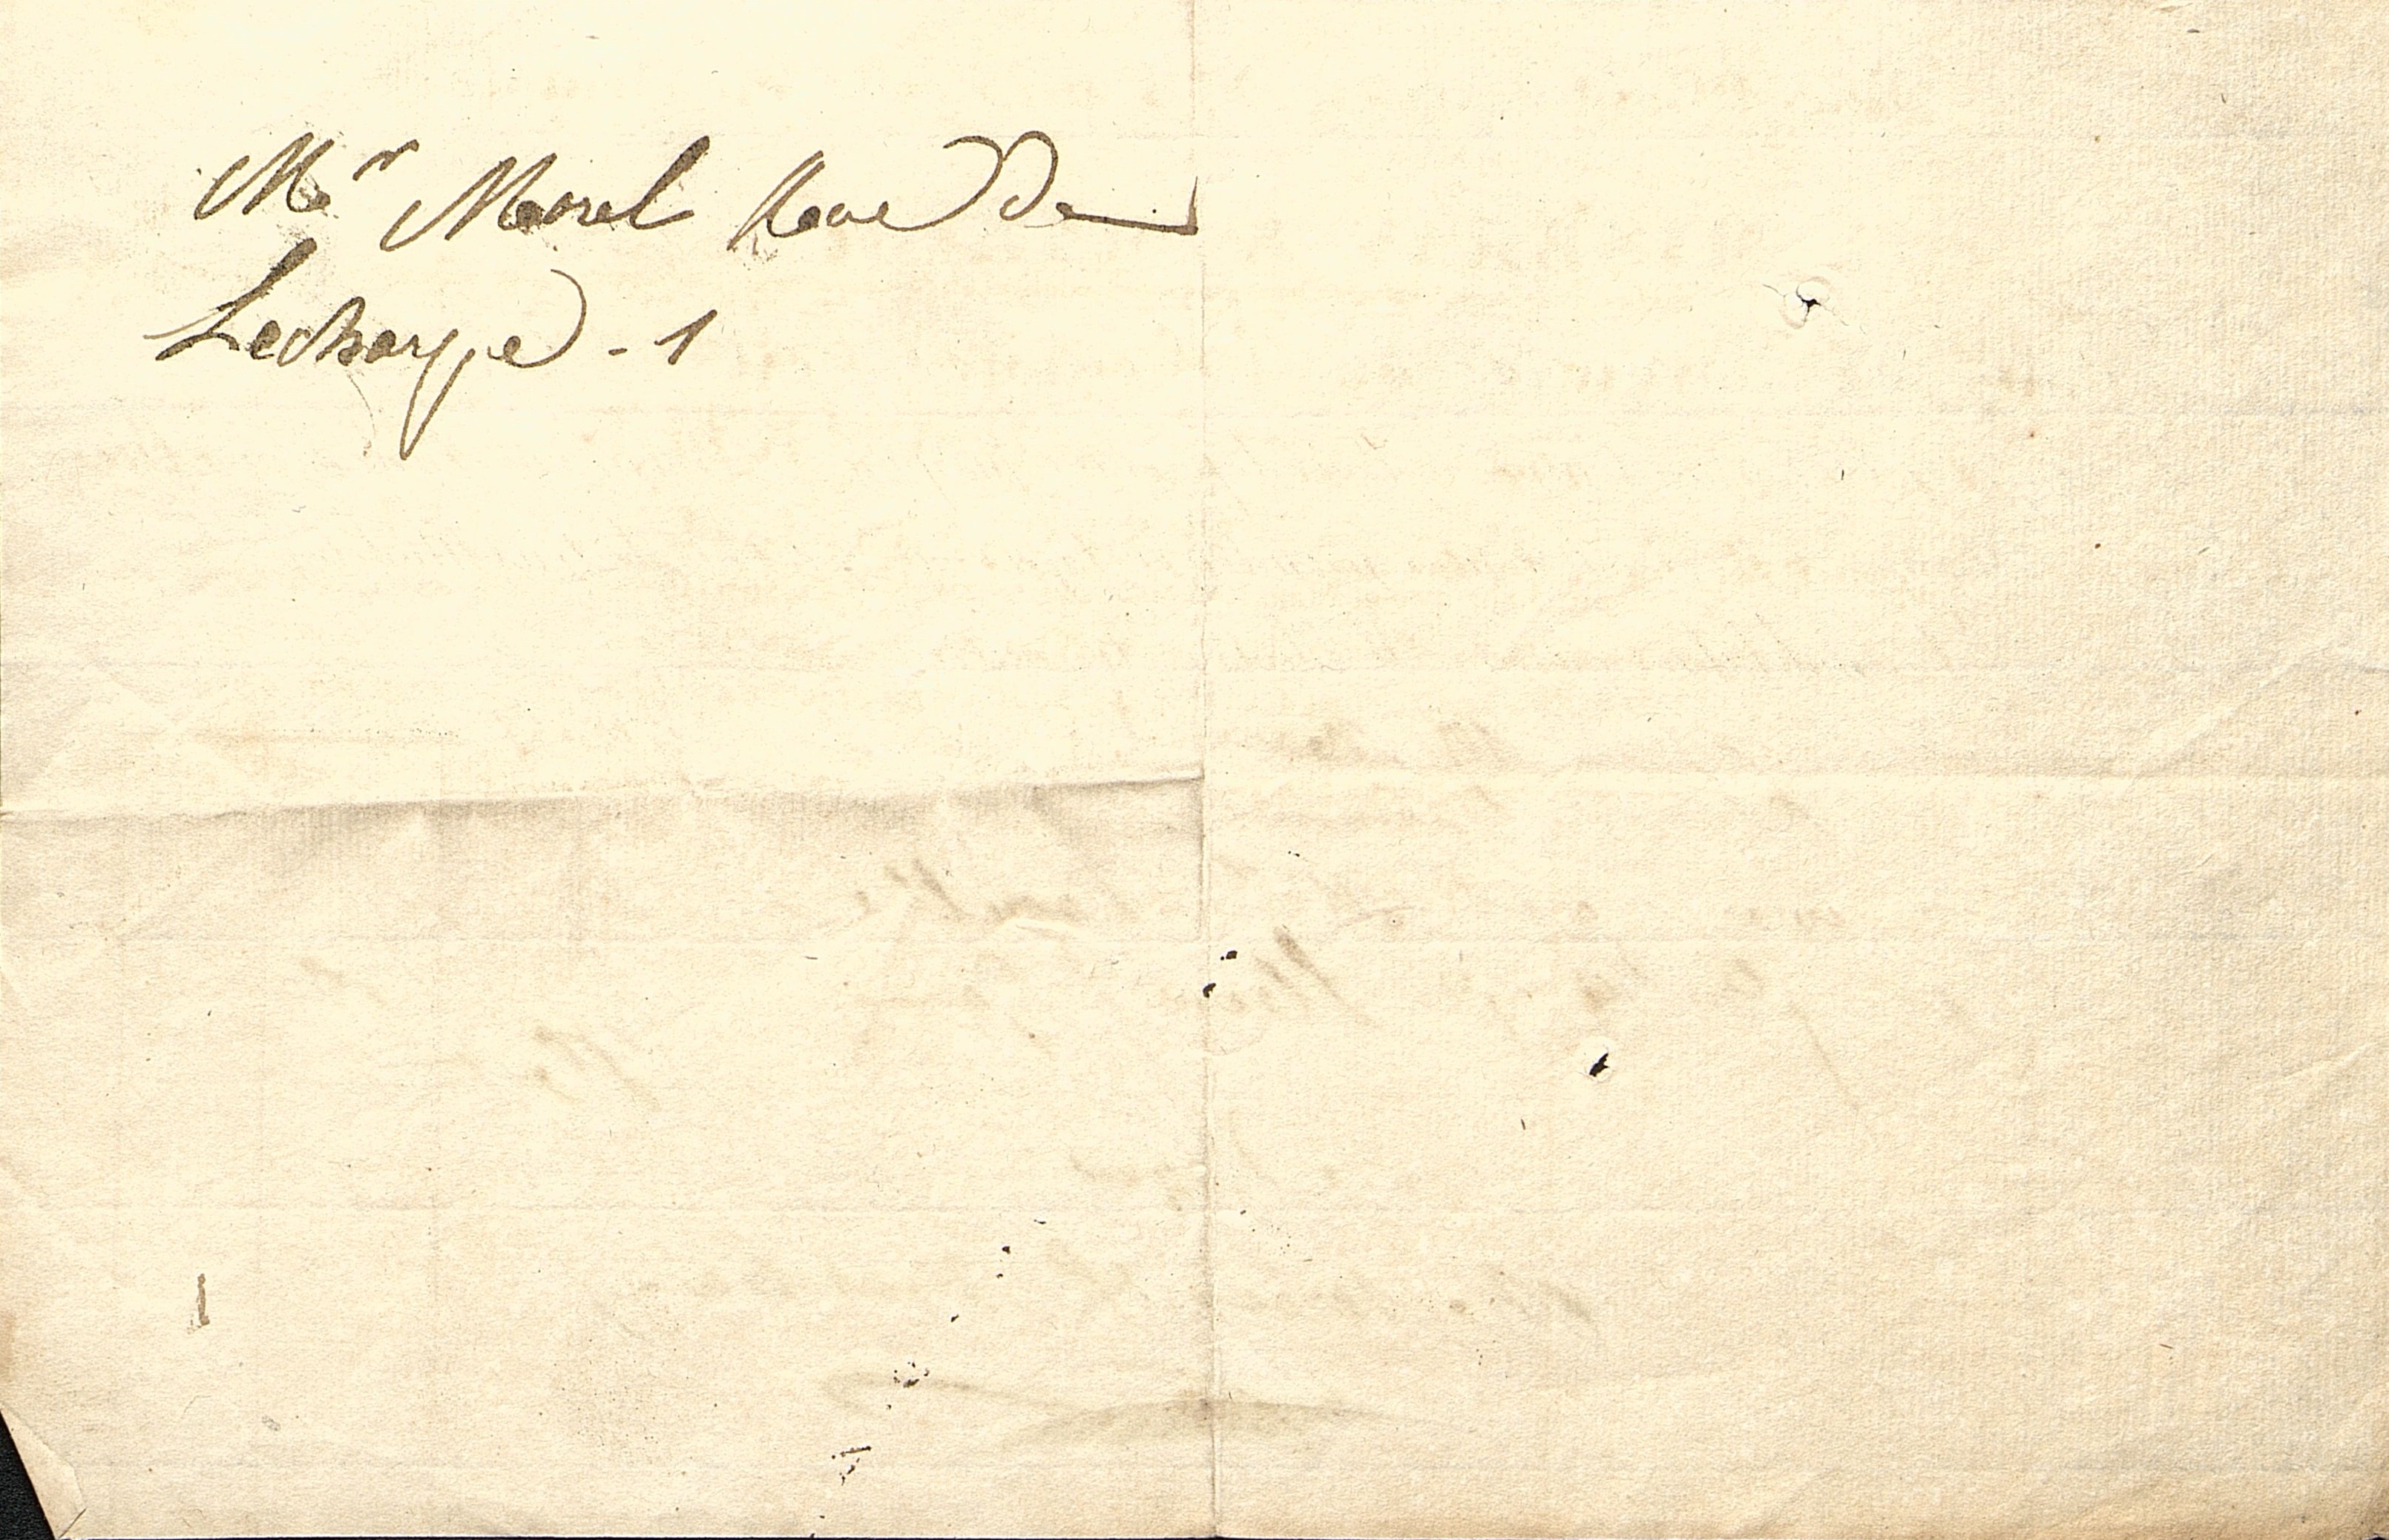 Mr Morel Rue De
Lecharpe - 1